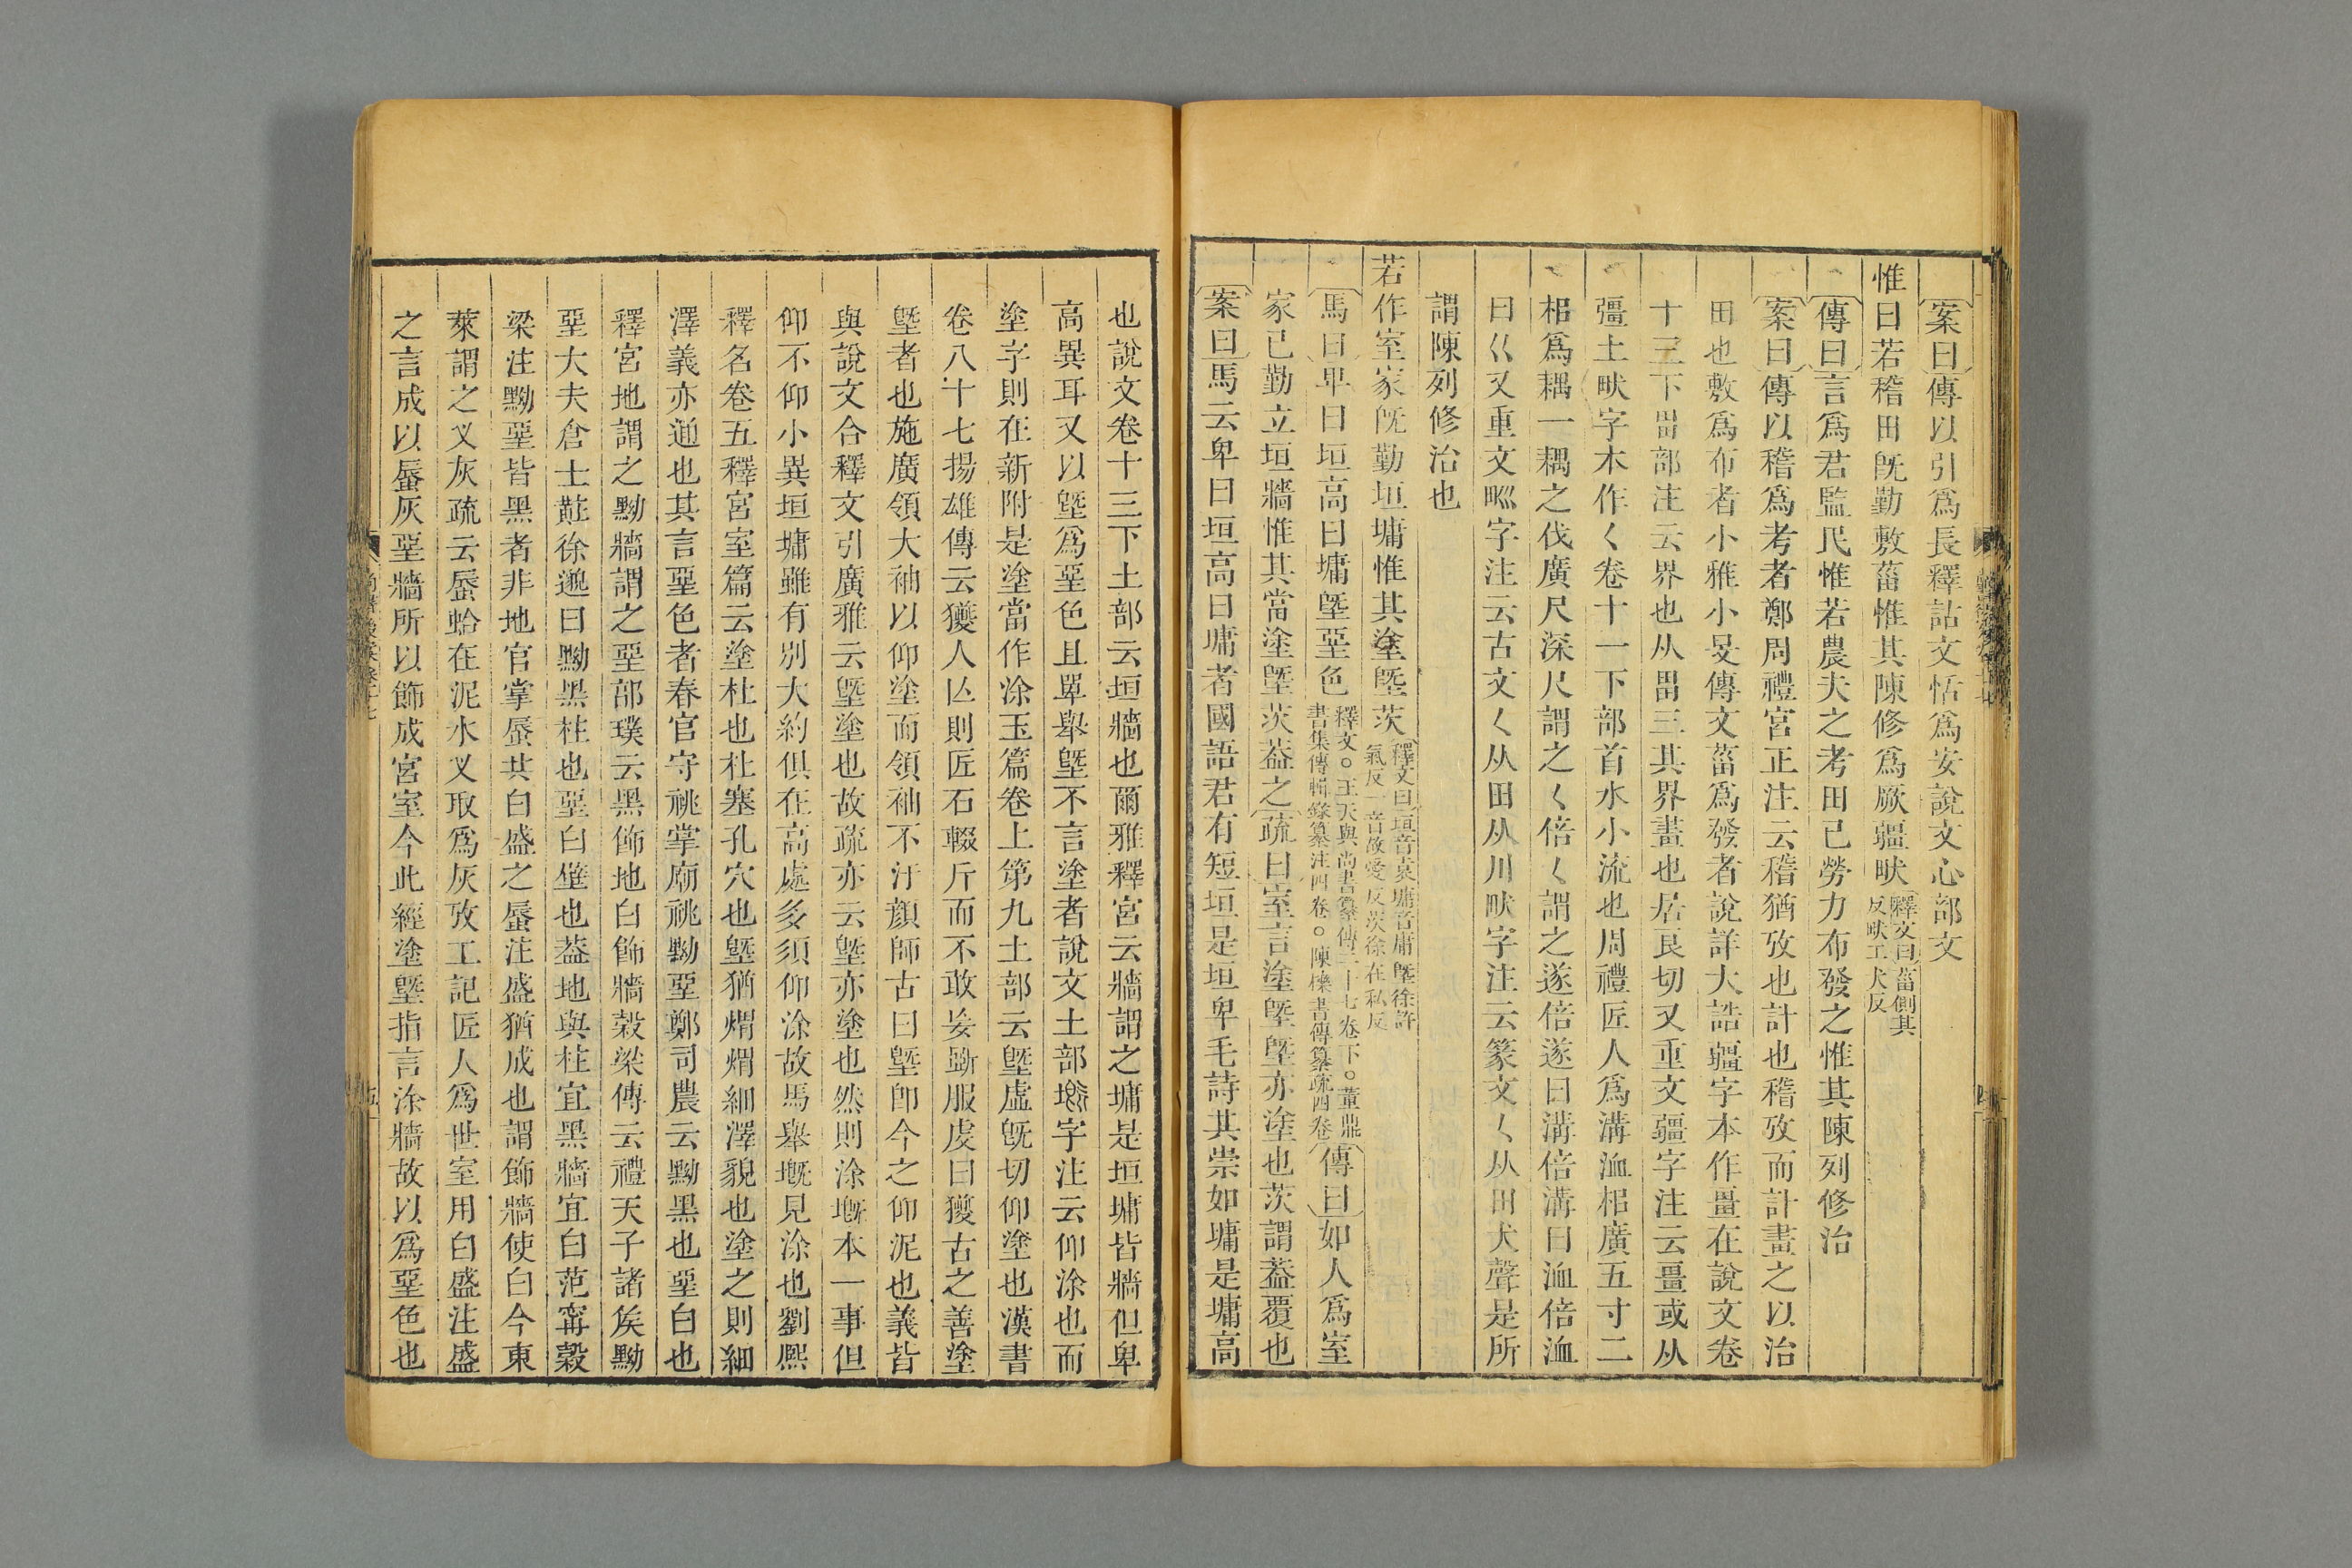 案曰傳以引爲長釋詁文恬爲安說文心部文
惟曰若稽田旣勤敷菑惟其陳修爲厥疆畎釋文曰菑側其反畎工犬反
傳曰言爲君監民惟若農夫之考田已勞力布發之惟其陳列修治
案曰傳以稽爲考者鄭周禮宮正注云稽猶攷也計也稽攷而計畫之以治
田也敷爲布者小雅小旻傳文菑爲發者說詳大誥疆字本作畺在說文卷
十三下畕部注云界也从畕三其界畫也居良切又重文疆字注云畺或从
彊土畎字本作く卷十一下部首水小流也周禮匠人爲溝洫枱廣五寸二
枱爲耦一耦之伐廣尺深尺謂之く倍く謂之遂倍遂曰溝倍溝曰洫倍洫
曰巜又重文甽字注云古文く从田从川畎字注云篆文く从田犬聲是所
謂陳列修治也
若作室家旣勤垣墉惟其塗塈茨釋文曰垣音袁墉音庸塈徐許氣反一音故愛反茨徐在私反
馬曰卑曰垣高曰墉塈堊色釋文○王天與尚書纂傳二十七卷下○董鼎書集傳輯錄纂注四卷○陳櫟書傳纂疏四卷傳曰如人爲室
家已勤立垣牆惟其當塗塈茨蓋之疏曰室言塗塈塈亦塗也茨謂蓋覆也
案曰馬云卑曰垣高曰墉者國語君有短垣是垣卑毛詩其崇如墉是墉高
也說文卷十三下土部云垣牆也爾雅釋宮云牆謂之墉是垣墉皆牆但卑
高異耳又以塈爲堊色且單舉塈不言塗者說文土部墍字注云仰涂也而
塗字則在新附是塗當作涂玉篇卷上第九土部云塈虛旣切仰塗也漢書
卷八十七揚雄傳云獿人亾則匠石輟斤而不敢妄斲服虔曰獿古之善塗
塈者也施廣領大袖以仰塗而領袖不汙顏師古曰塈卽今之仰泥也義皆
與說文合釋文引廣雅云塈塗也故疏亦云塈亦塗也然則涂墍本一事但
仰不仰小異垣墉雖有別大約俱在高處多須仰涂故馬舉墍見涂也劉熙
釋名卷五釋宮室篇云塗杜也杜塞孔穴也塈猶煟煟細澤貌也塗之則細
澤義亦通也其言堊色者春官守祧掌廟祧黝堊鄭司農云黝黑也堊白也
釋宮地謂之黝牆謂之堊郭璞云黑飾地白飾牆穀梁傳云禮天子諸矦黝
堊大夫倉士黈徐邈曰黝黑柱也堊白壁也蓋地與柱宜黑牆宜白范甯穀
梁注黝堊皆黑者非地官掌蜃共白盛之蜃注盛猶成也謂飾牆使白今東
萊謂之叉灰疏云蜃蛤在泥水叉取爲灰攷工記匠人爲世室用白盛注盛
之言成以蜃灰堊牆所以飾成宮室今此經塗塈指言涂牆故以爲堊色也